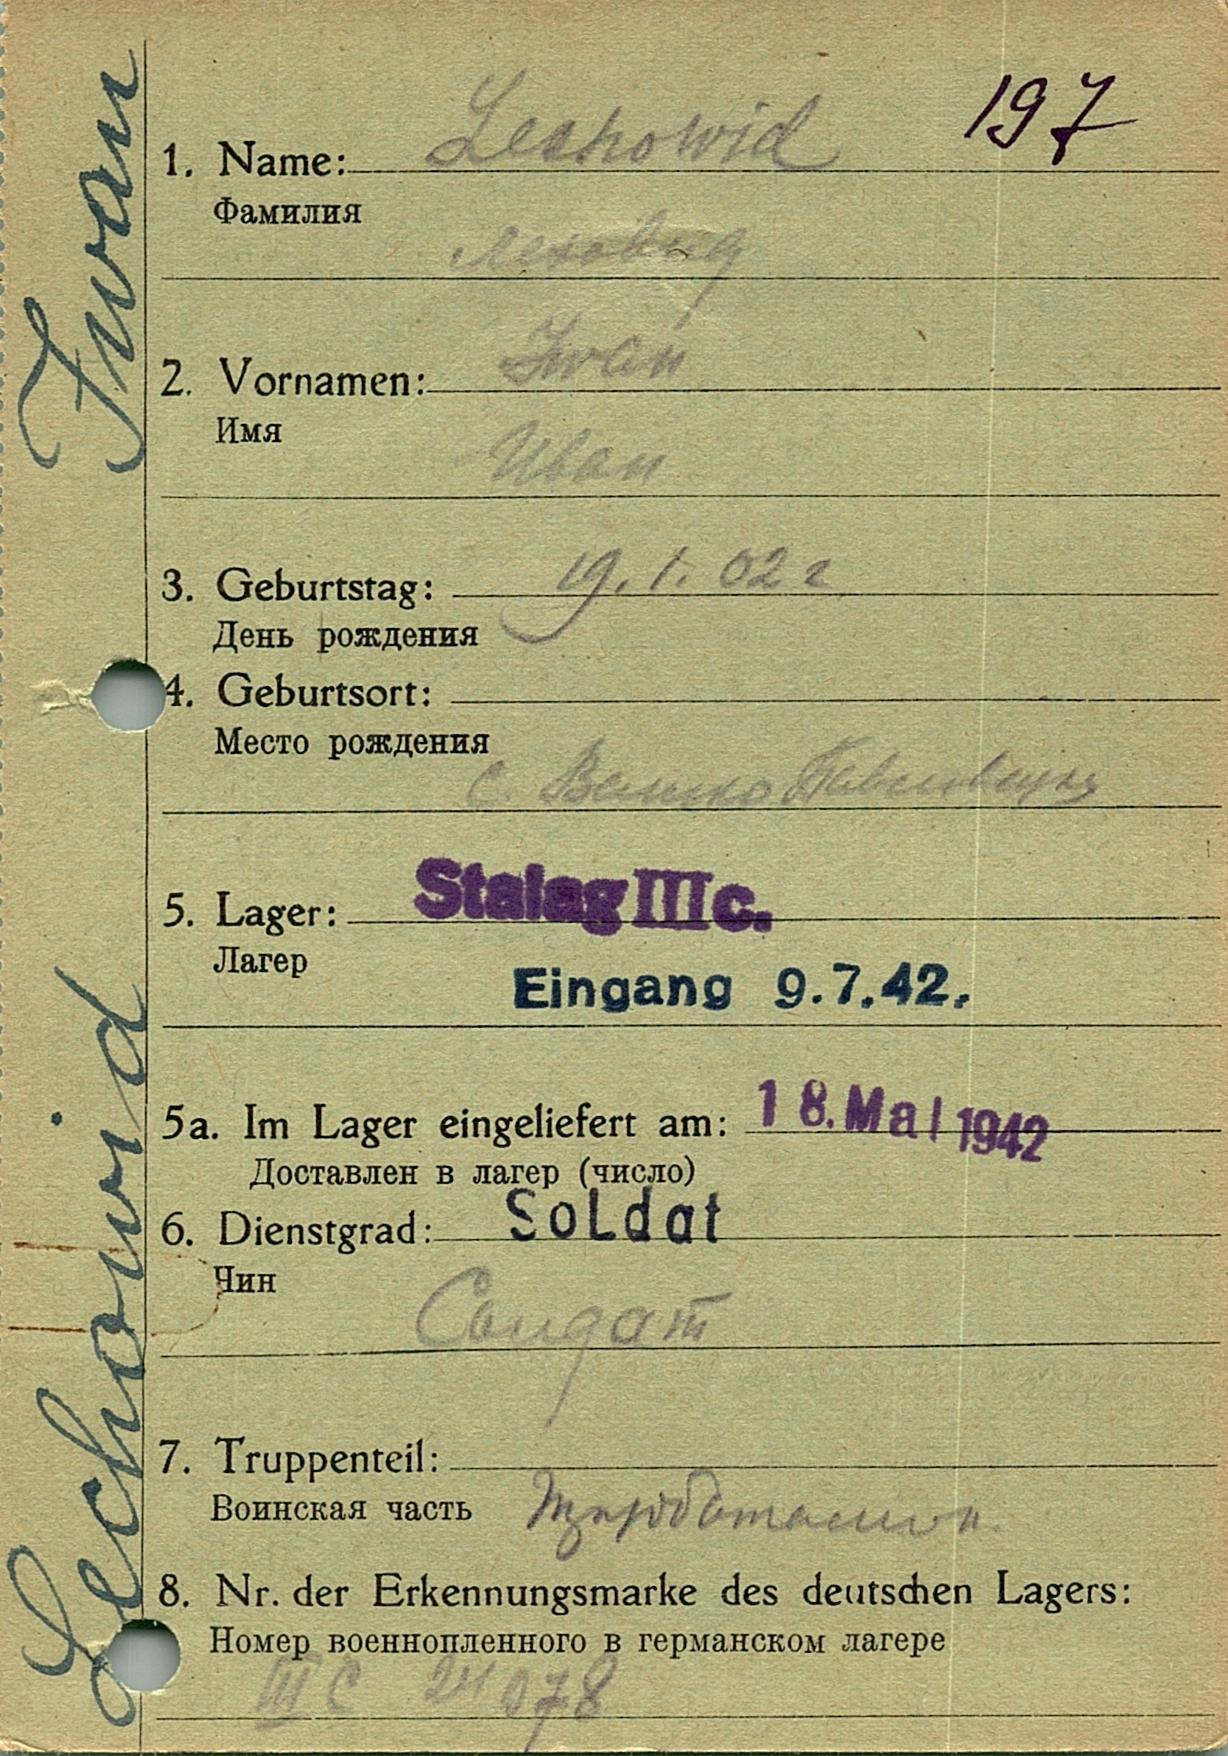 197
1. Name: Lechowid
Фамилия
Леховид
2. Vornamen: Iwan
Имя
Иван
3. Geburtstag: 19.1.02 г
День рождения
4. Geburtsort:
Место рождения
с.
5. Lager: Stalag III c.
Лагер
Eingang 9.7.42.
5a. Im Lager eingeliefert am: 18. Mai 1942
Доставлен в лагер (число)
6. Dienstgrad: Soldat
Чин
Солдат
7. Truppenteil:
Воинская часть
8. Nr. der Erkennungsmarke des deutschen Lagers:
Номер военнопленного в германском лагере
III C 24078
Lechowid Iwan